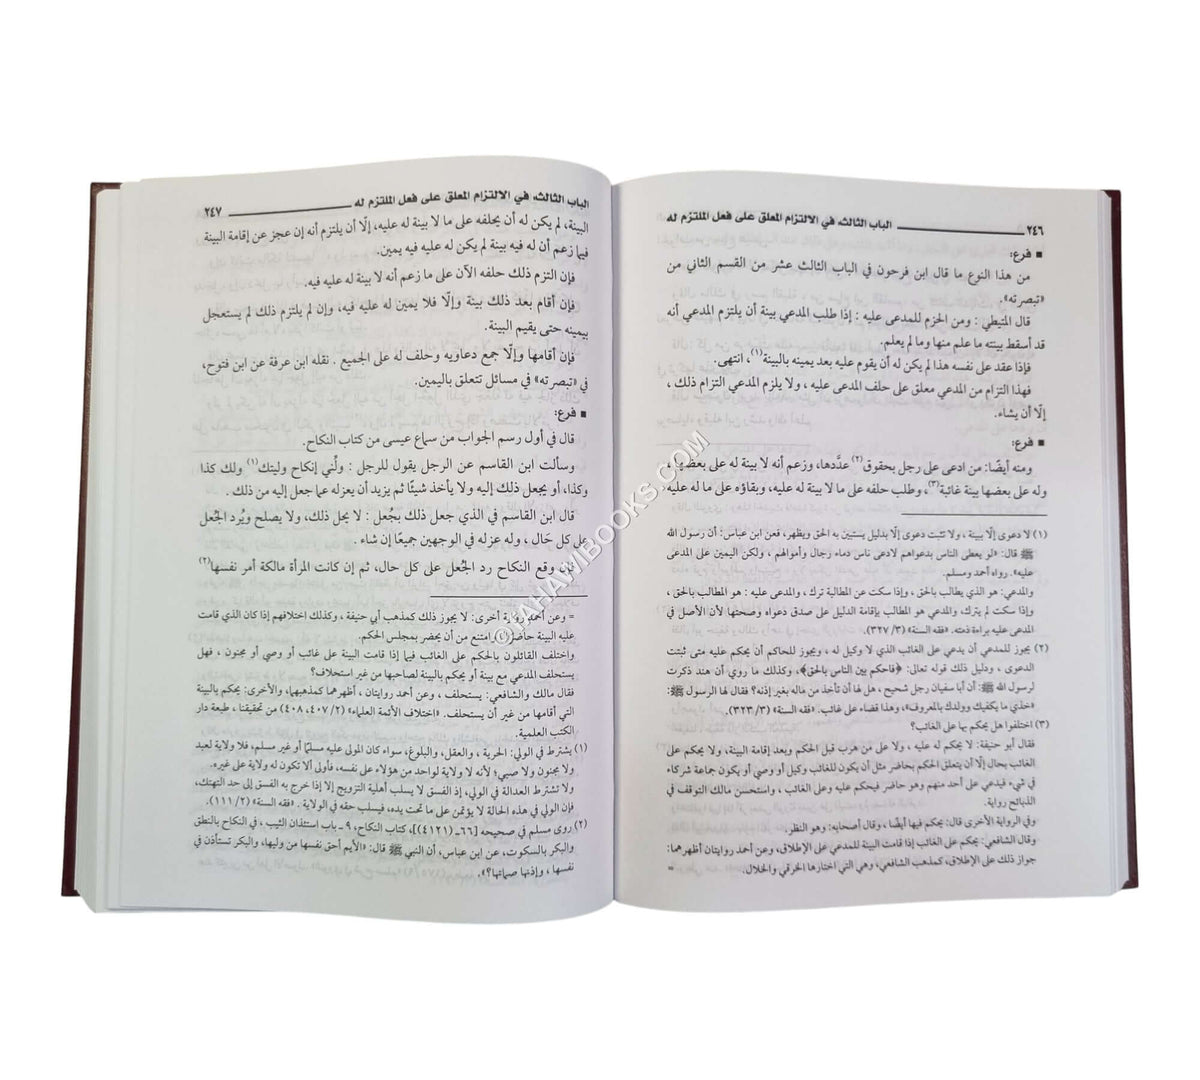 ٢٤٦ الباب الثالث: في الالتزام المعلق على فعل الملتزم له
■ فرع:
من هذا النوع ما قال ابن فرحون في الباب الثالث عشر من القسم الثاني من
«تبصرته».
قال المتيطي : ومن الحزم للمدعى عليه : إذا طلب المدعي بينة أن يلتزم المدعي أنه
قد أسقط بينته ما علم منها وما لم يعلم.
فإذا عقد على نفسه هذا لم يكن له أن يقوم عليه بعد يمينه بالبينة(١)، انتهى.
فهذا التزام من المدعي معلق على حلف المدعى عليه ، ولا يلزم المدعي التزام ذلك ،
إلّا أن يشاء.
■ فرع:
ومنه أيضًا: من ادعى على رجل بحقوق(٢) عدَّدها، وزعم أنه لا بينة له على بعضها ،
وله على بعضها بينة غائبة(٣)، وطلب حلفه على ما لا بينة له عليه، وبقاؤه على ما له عليه
(١) لا دعوى إلّا ببينة ، ولا تثبت دعوى إلّا بدليل يستبين به الحق ويظهر، فعن ابن عباس: أن رسول الله
ﷺ قال: «لو يعطى الناس بدعواهم لادعى ناس دماء رجال وأموالهم ، ولكن اليمين على المدعى
عليه». رواه أحمد ومسلم.
والمدعي: هو الذي يطالب بالحق ، وإذا سكت عن المطالبة ترك ، والمدعى عليه : هو المطالب بالحق ،
وإذا سكت لم يترك ، والمدعي هو المطالب بإقامة الدليل على صدق دعواه وصحتها لأن الأصل في
المدعى عليه براءة ذمته. «فقه السنة» (٣/ ٣٢٧).
(٢) يجوز للمدعي أن يدعي على الغائب الذي لا وكيل له ، ويجوز للحاكم أن يحكم عليه متى ثبتت
الدعوى ، ودليل ذلك قوله تعالى: ﴿فاحكم بين الناس بالحق﴾، وكذلك ما روي أن هند ذكرت
لرسول الله ﷺ: أن أبا سفيان رجل شحيح ، هل لها أن تأخذ من ماله بغير إذنه؟ فقال لها الرسول ﷺ:
«خذي ما يكفيك وولدك بالمعروف»، وهذا قضاء على غائب. «فقه السنة» (٣/ ٣٢٣).
(٣) اختلفوا هل يحكم بها على الغائب؟
فقال أبو حنيفة: لا يحكم له عليه ، ولا على من هرب قبل الحكم وبعد إقامة البينة، ولا يحكم على
الغائب بحال إلّا أن يتعلق الحكم بحاضر مثل أن يكون للغائب وكيل أو وصي أو يكون جماعة شركاء
في شيء فيدعي على أحد منهم وهو حاضر فيحكم عليه وعلى الغائب ، واستحسن مالك التوقف في
الذبائح رواية.
وفي الرواية الأخرى قال: يحكم فيها أيضًا ، وقال أصحابه: وهو النظر.
وقال الشافعي: يحكم على الغائب إذا قامت البينة للمدعي على الإطلاق، وعن أحمد روايتان أظهرهما:
جواز ذلك على الإطلاق، كمذهب الشافعي، وهي التي اختارها الخرقي والخلال. =
الباب الثالث: في الالتزام المعلق على فعل الملتزم له ٢٤٧
البينة، لم يكن له أن يحلفه على ما لا بينة له عليه، إلّا أن يلتزم أنه إن عجز عن إقامة البينة
فيما زعم أن له فيه بينة لم يكن له عليه فيه يمين.
فإن التزم ذلك حلفه الآن على ما زعم أنه لا بينة له عليه فيه.
فإن أقام بعد ذلك بينة وإلّا فلا يمين له عليه فيه، وإن لم يلتزم ذلك لم يستعجل
بيمينه حتى يقيم البينة.
فإن أقامها وإلّا جمع دعاويه وحلف له على الجميع . نقله ابن عرفة عن ابن فتوح،
في «تبصرته» في مسائل تتعلق باليمين.
■ فرع:
قال في أول رسم الجواب من سماع عيسى من كتاب النكاح.
وسألت ابن القاسم عن الرجل يقول للرجل : ولّني إنكاح وليتك(١) ولك كذا
وكذا، أو يجعل ذلك إليه ولا يأخذ شيئًا ثم يريد أن يعزله عما جعل إليه من ذلك .
قال ابن القاسم في الذي جعل ذلك بجُعل : لا يحل ذلك، ولا يصلح ويُرد الجُعل
على كل حَال ، وله عزله في الوجهين جميعًا إن شاء .
فإن وقع النكاح رد الجُعل على كل حال، ثم إن كانت المرأة مالكة أمر نفسها(٢)
= وعن أحمد رواية أخرى: لا يجوز ذلك كمذهب أبي حنيفة ، وكذلك اختلافهم إذا كان الذي قامت
عليه البينة حاضرًا وامتنع من أن يحضر بمجلس الحكم.
واختلف القائلون بالحكم على الغائب فيما إذا قامت البينة على غائب أو وصي أو مجنون ، فهل
يستحلف المدعي مع بينة أو يحكم بالبينة لصاحبها من غير استحلاف؟
فقال مالك والشافعي: يستحلف ، وعن أحمد روايتان ، أظهرهما كمذهبهما، والأخرى: يحكم بالبينة
التي أقامها من غير أن يستحلف. «اختلاف الأئمة العلماء» (٢/ ٤٠٧، ٤٠٨) من تحقيقنا ، طبعة دار
الكتب العلمية.
(١) يشترط في الولي: الحرية ، والعقل، والبلوغ، سواء كان المولى عليه مسلمًا أو غير مسلم، فلا ولاية لعبد
ولا مجنون ولا صبي؛ لأنه لا ولاية لواحد من هؤلاء على نفسه، فأولى ألا تكون له ولاية على غيره.
ولا تشترط العدالة في الولي، إذ الفسق لا يسلب أهلية التزويج إلا إذا خرج به الفسق إلى حد التهتك،
فإن الولي في هذه الحالة لا يؤتمن على ما تحت يده، فيسلب حقه في الولاية . «فقه السنة» (٢/ ١١١).
(٢) روى مسلم في صحيحه [٦٦ـ (٤١٢١)]، كتاب النكاح، ٩ـ باب استئذان الثيب ، في النكاح بالنطق
والبكر بالسكوت، عن ابن عباس، أن النبي ﷺ قال: «الأيم أحق نفسها من وليها، والبكر تستأذن في
نفسها ، وإذنها صماتها؟».